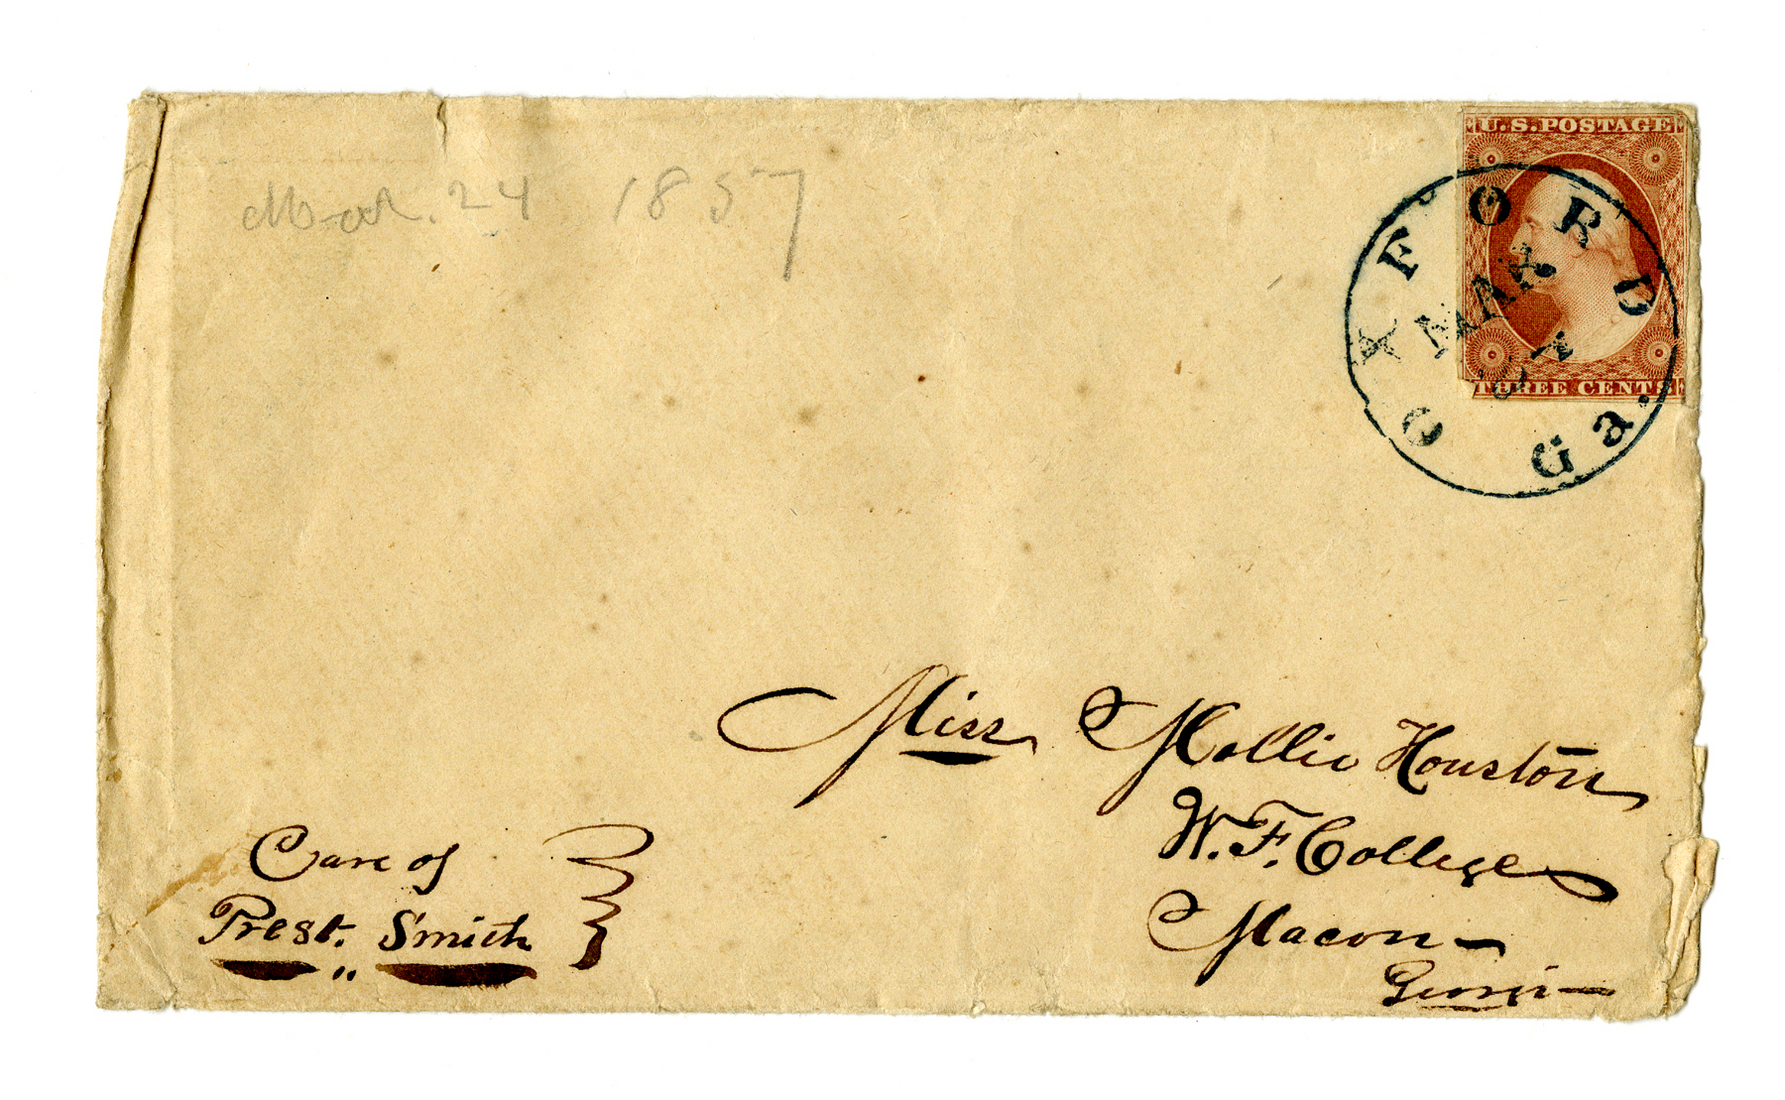 24 1857
U.S.POSTAGE
THREE CENTS
OXFORD Ga.
MAR
24
Miss Mollie Houston
W. F. College
Macon
Georgia
Care of
Prest. Smith